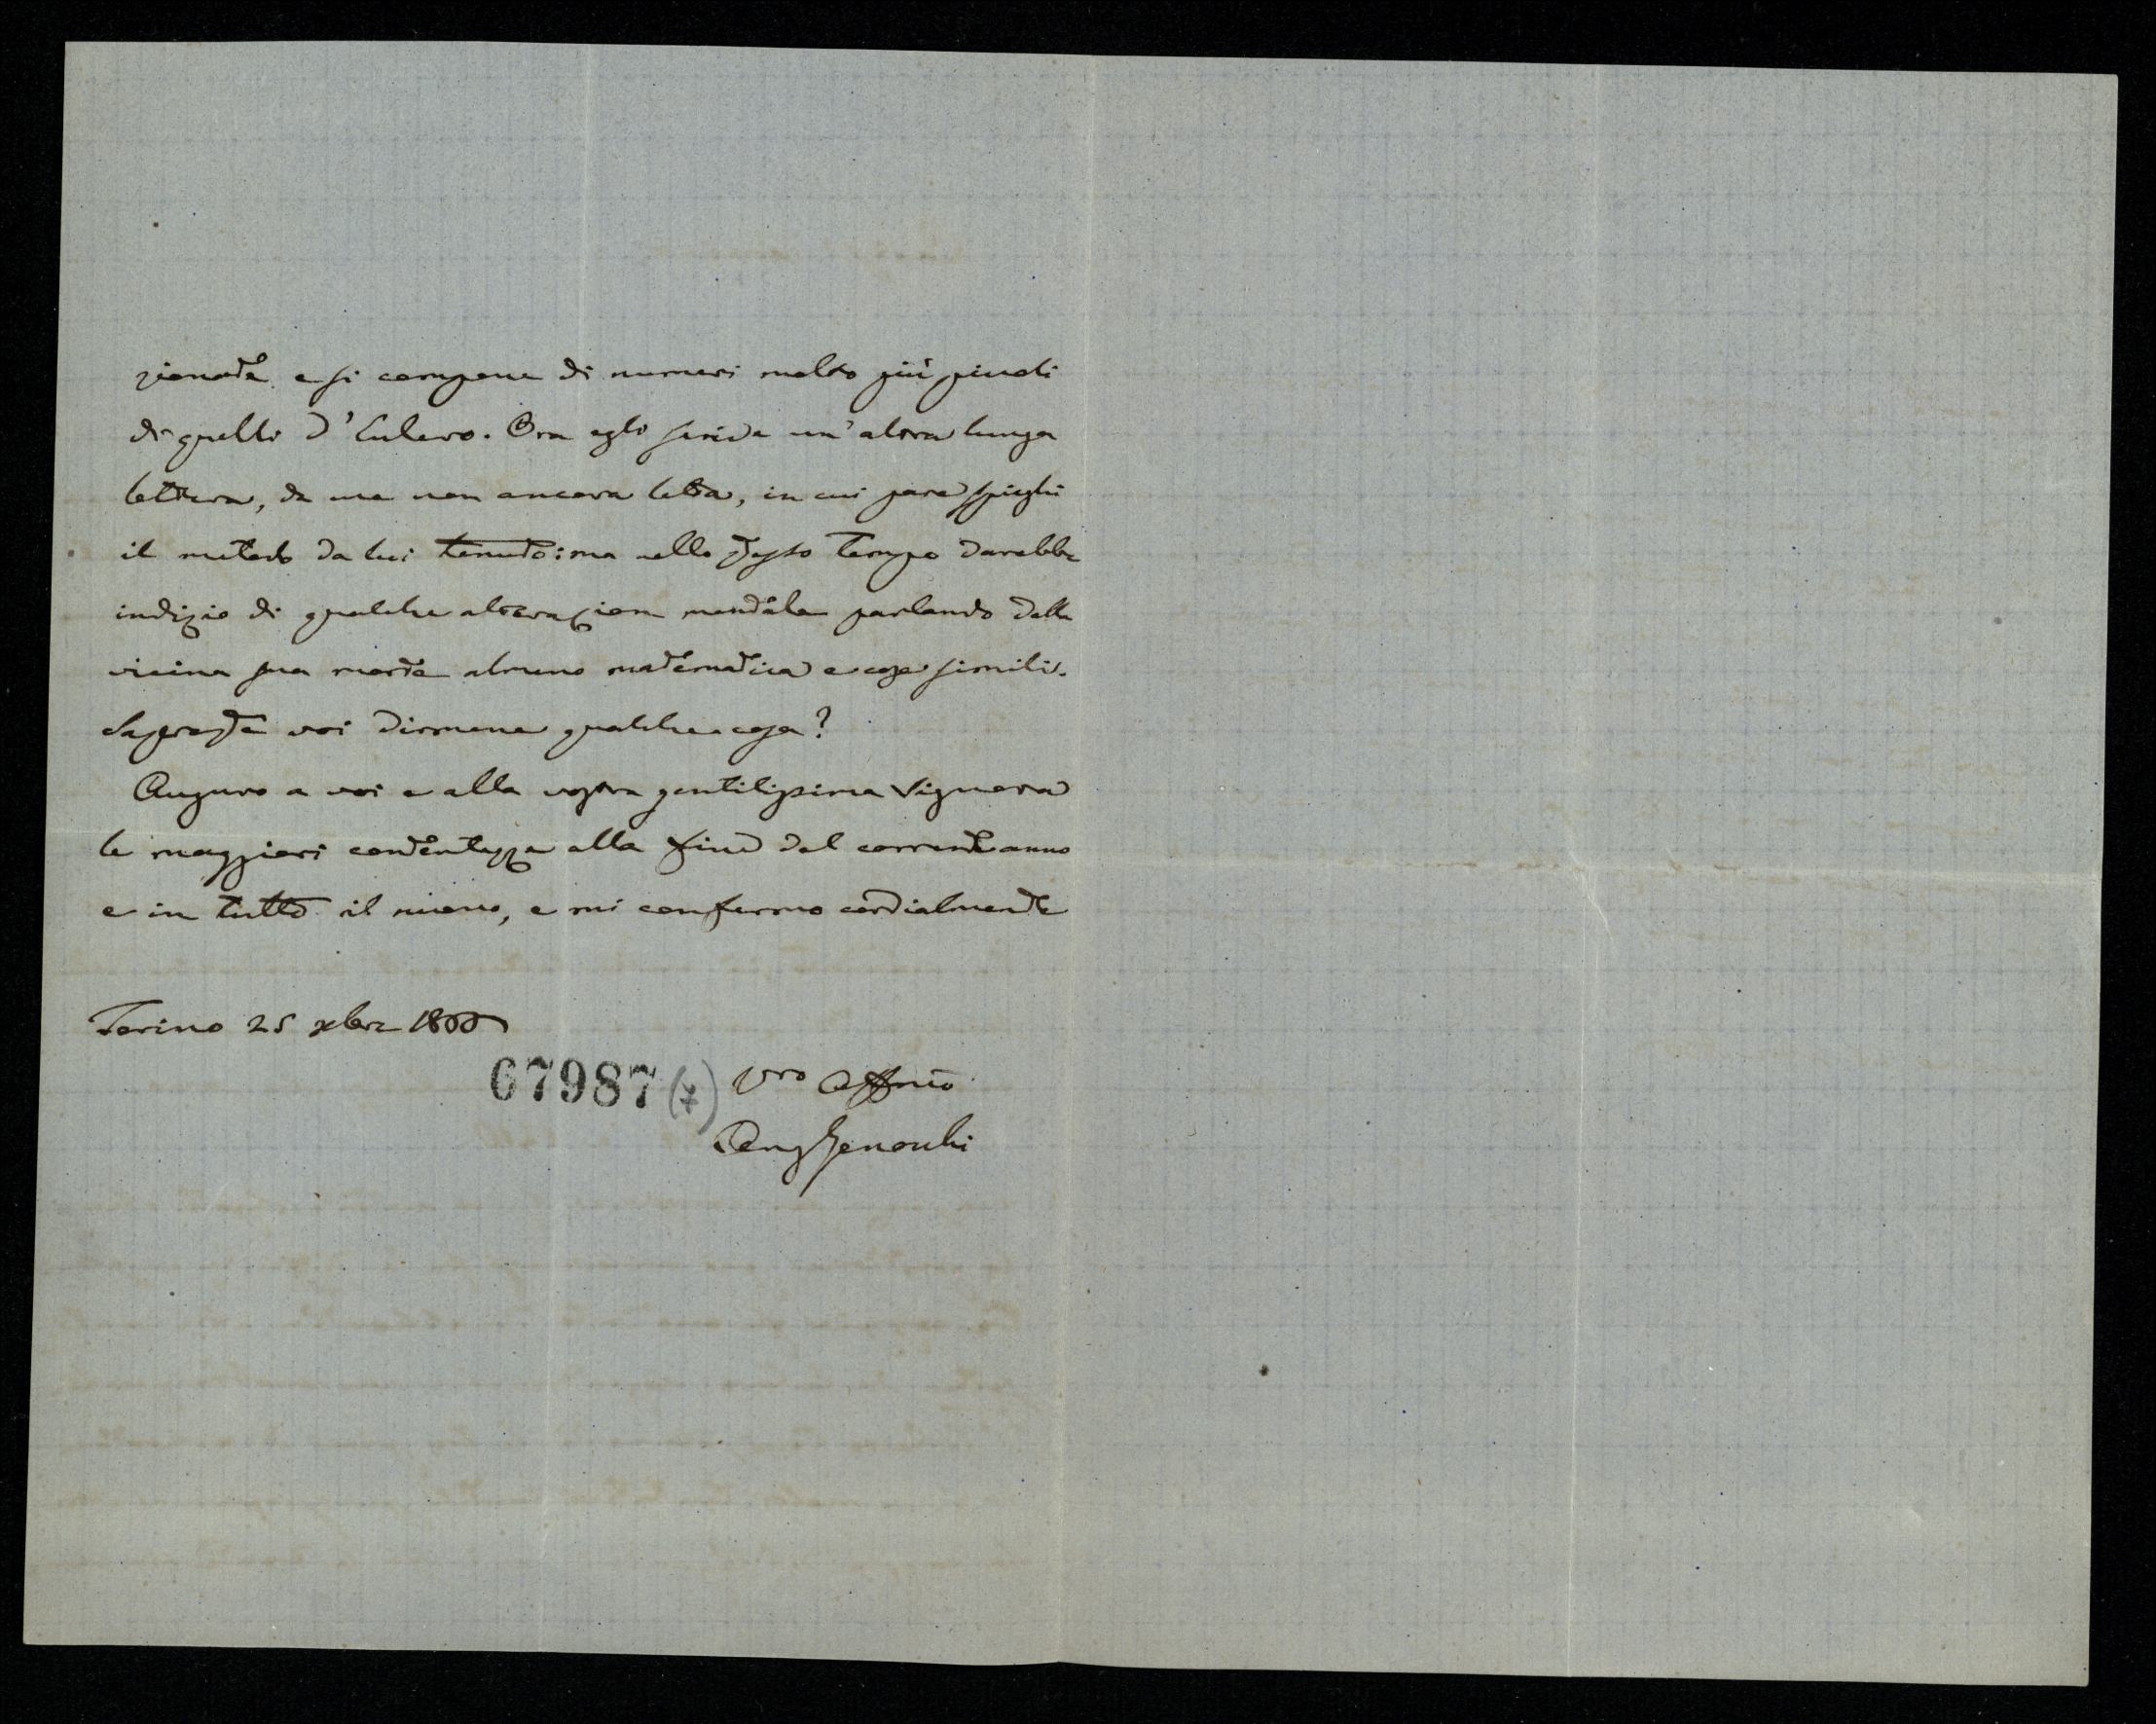 zionate e si compone di numeri molto più piccoli
di quelli d'Eulero. Ora egli scrive un'altra lunga
lettera, da me non ancora letta, in cui pare spieghi
il metodo da lui tenuto: ma nello stesso tempo darebbe
indizio di qualche alterazione mentale parlando della
vicina sua morte almeno matematica e cose simili.
Sapreste voi dirmene qualche cosa?
Auguro a voi e alla vostra gentilissima Signora
le maggiori contentezze alla fine del corrente anno
e in tutto il nuovo, e mi confermo cordialmente
Torino 25 xbre 1866
67987 (7) Vro Affmo
Ang Genocchi